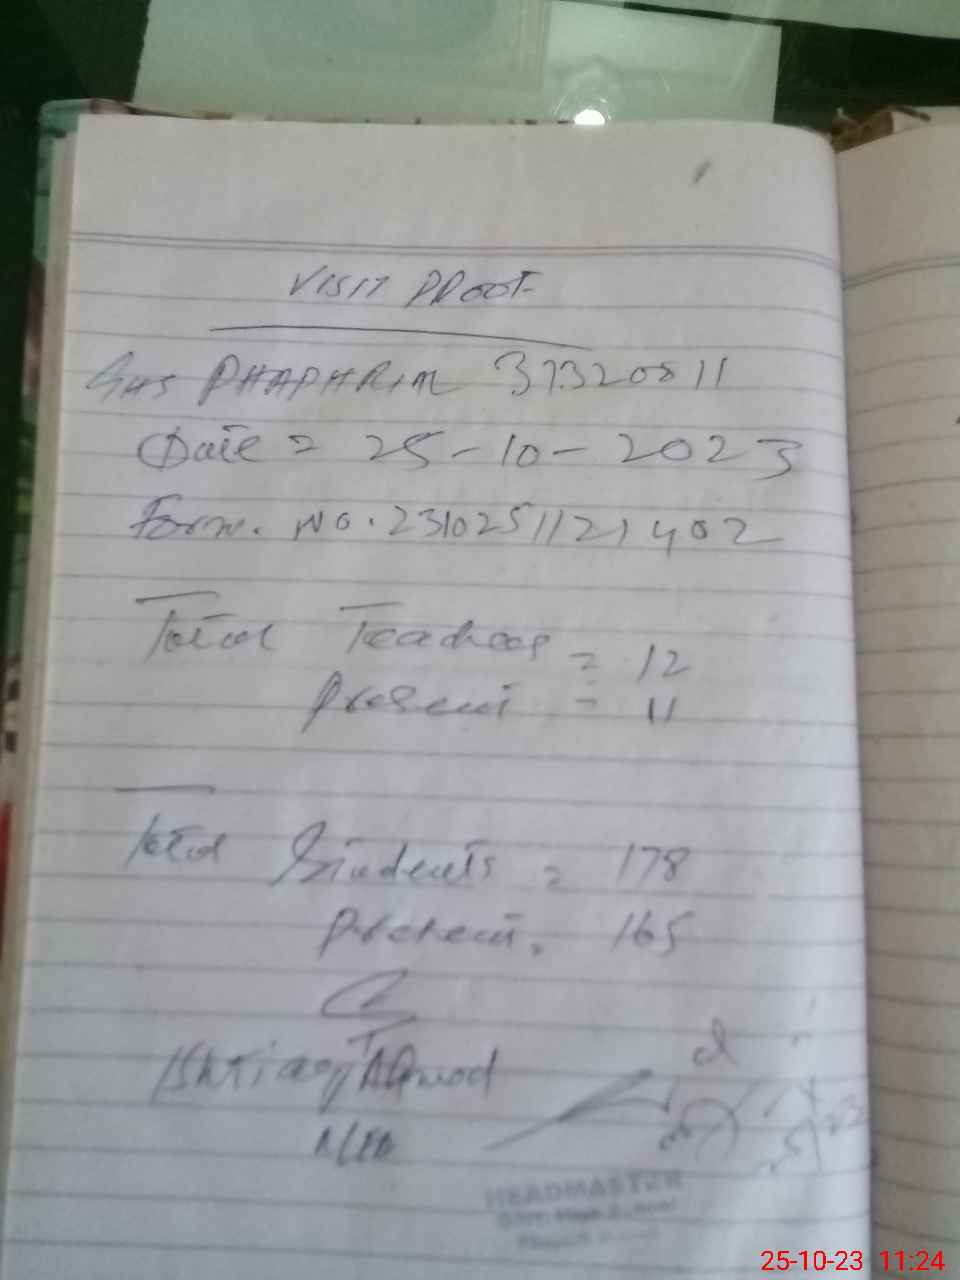 VISIT PROOF
GHS PHAPHRIL 37320811
Date = 25-10-2023
Form. No. 2310251121402
Total Teachers = 12
Present = 11
Total Students = 178
Present = 165
Ishtiaq Ahmad
HEADMASTER
Govt. High School
25-10-23 11:24